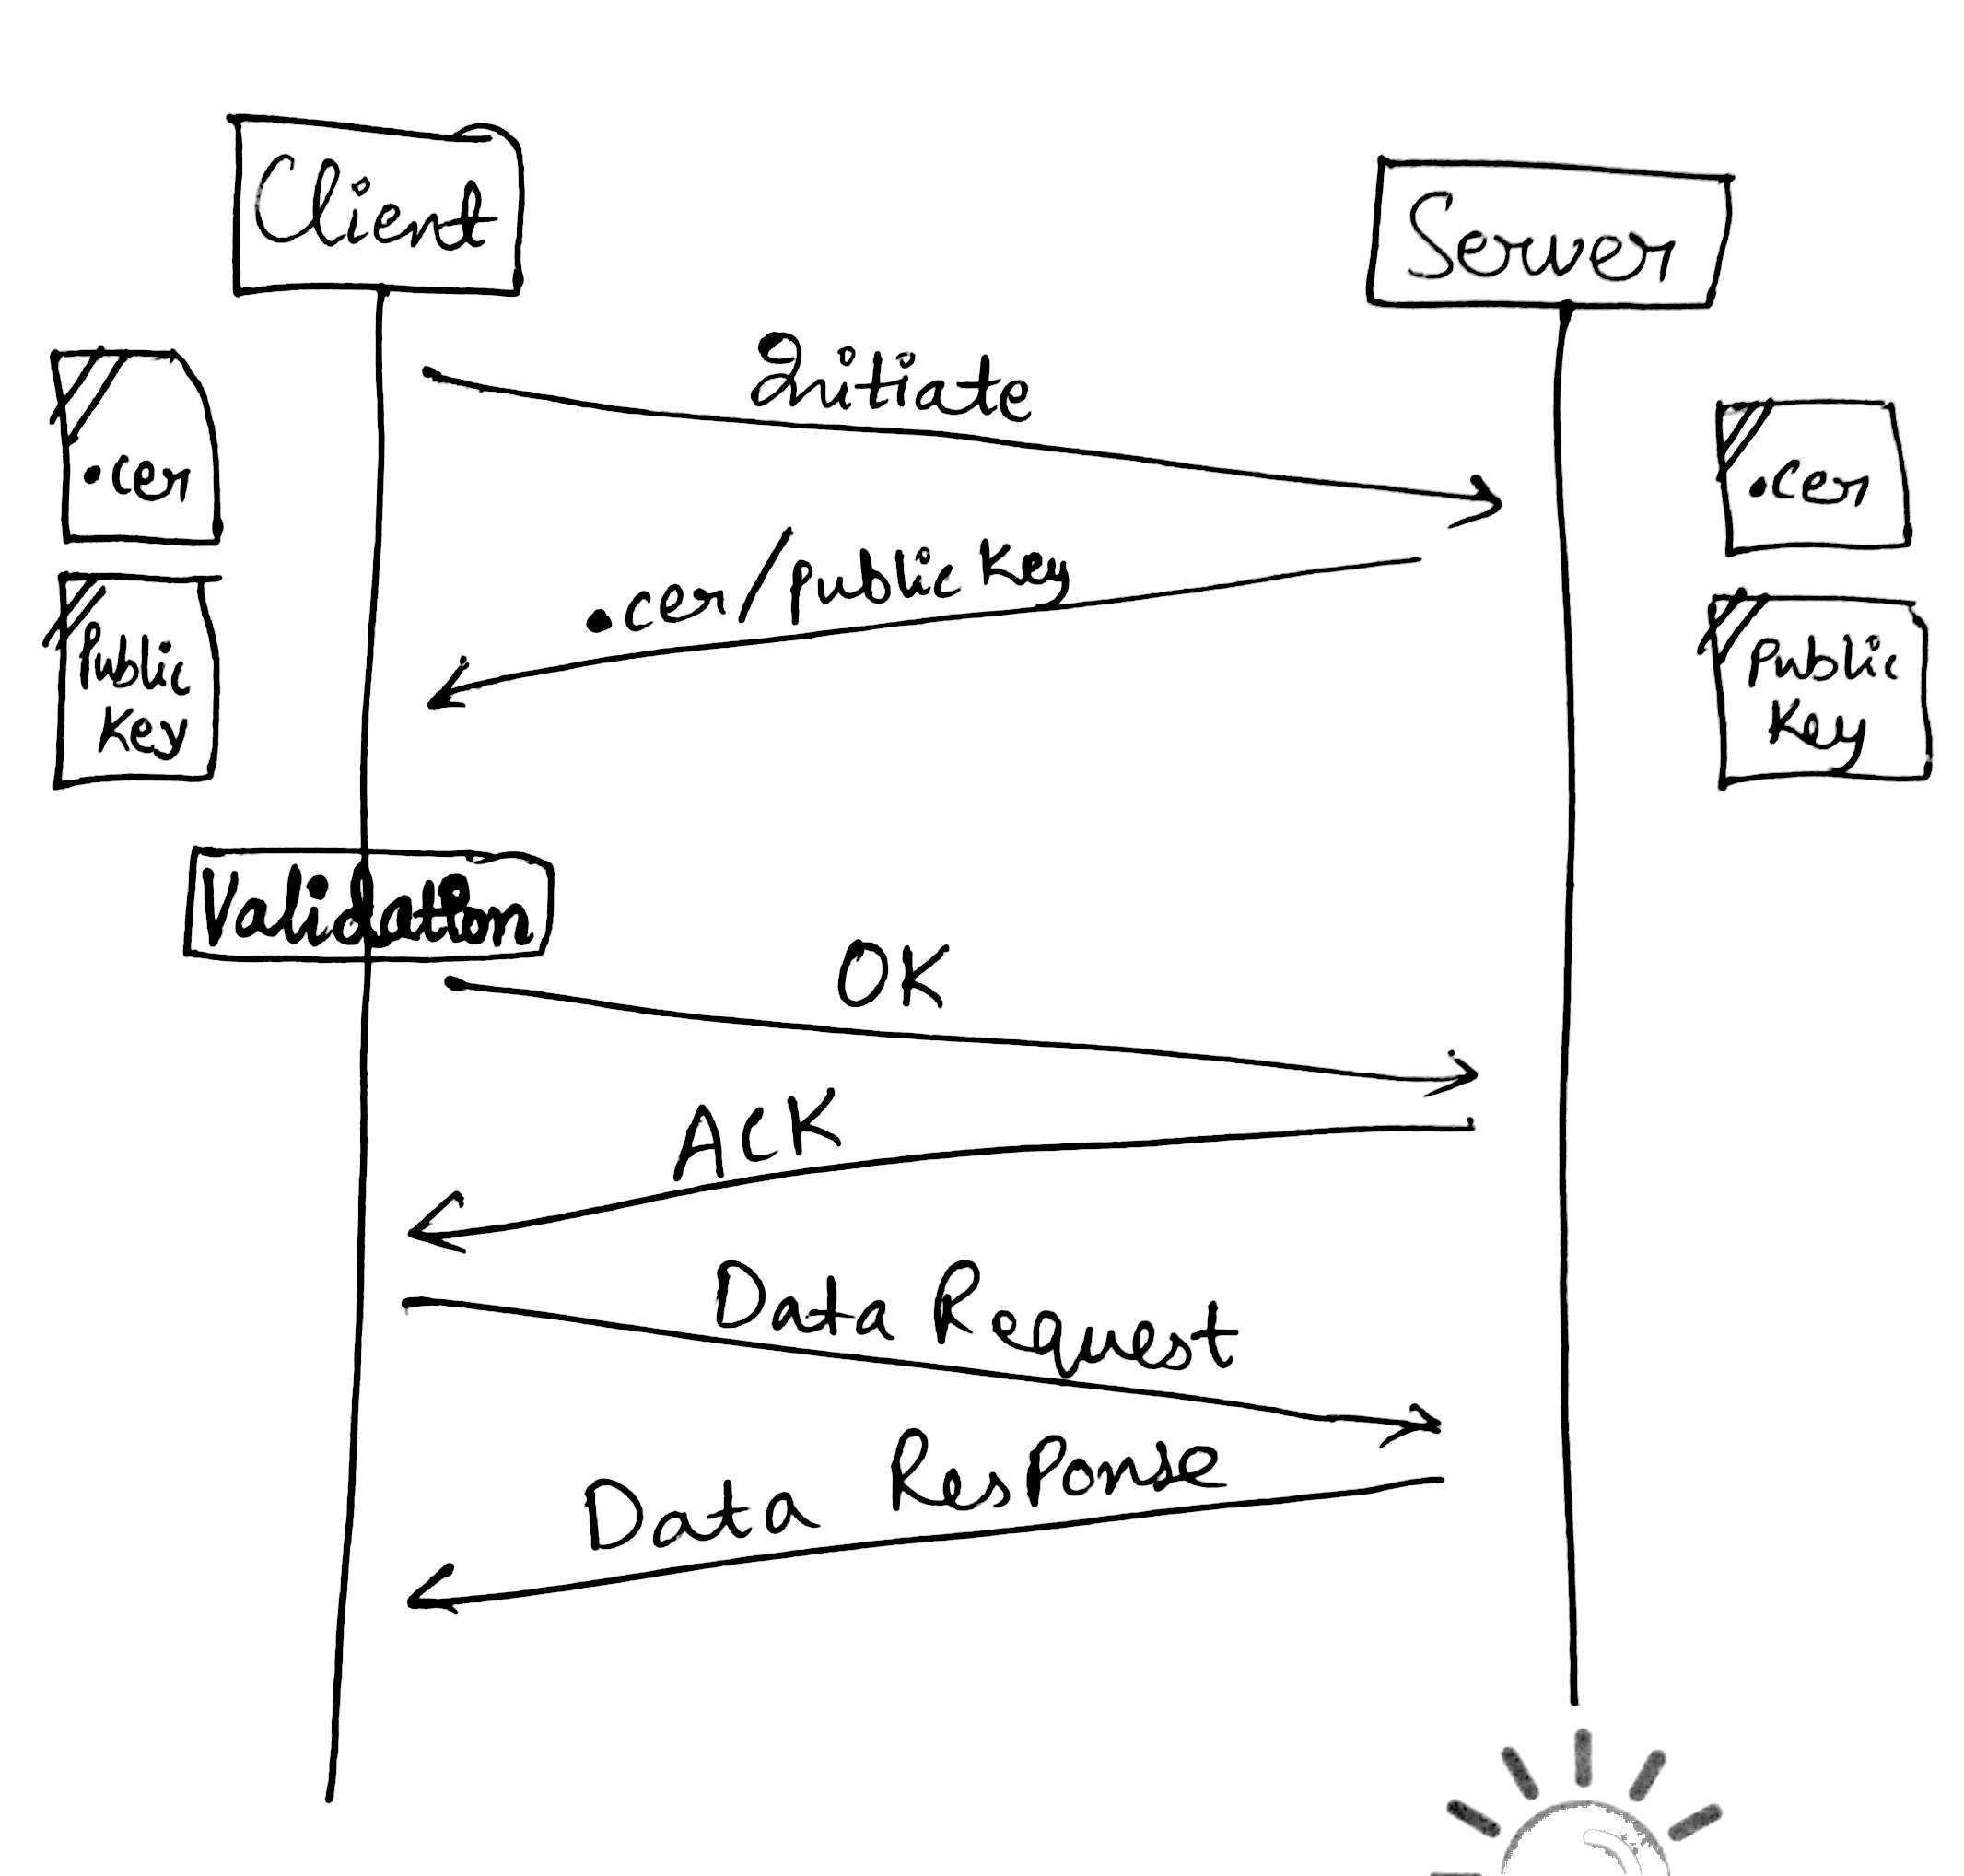 Client
Server
Initiate
.cer
.cer
.cer/Public Key
Public
Key
Public
Key
Validation
OK
ACK
Data Request
Data Response